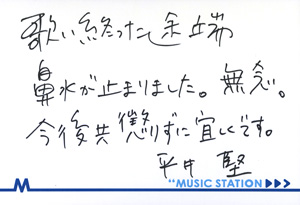 歌い終わった途端
鼻水が止まりました。無念。
今後共懲りずに宜しくです。
平井 堅
M
“MUSIC STATION